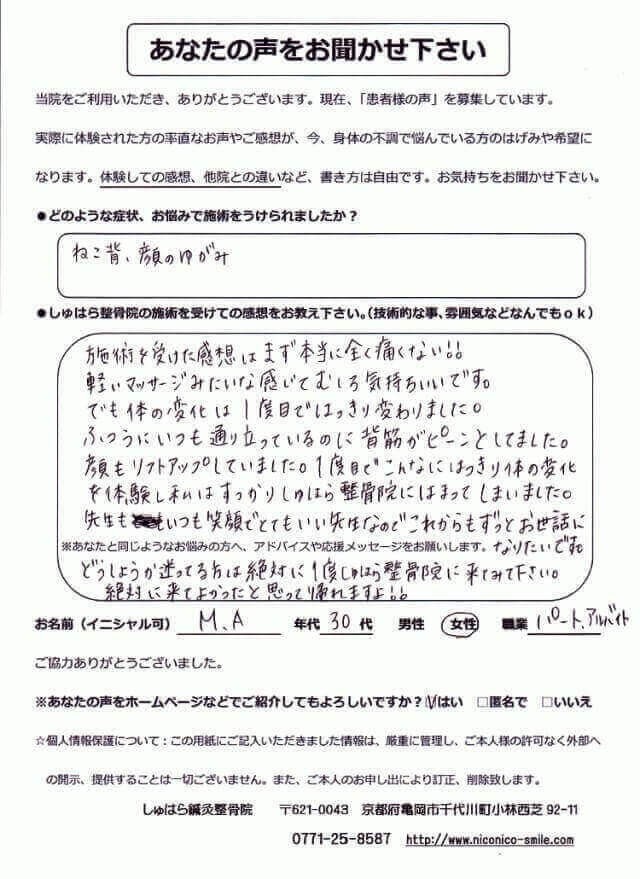 あなたの声をお聞かせ下さい
当院をご利用いただき、ありがとうございます。現在、「患者様の声」を募集しています。
実際に体験された方の率直なお声やご感想が、今、身体の不調で悩んでいる方のはげみや希望に
なります。体験しての感想、他院との違いなど、書き方は自由です。お気持ちをお聞かせ下さい。
●どのような症状、お悩みで施術をうけられましたか？
ねこ背、顔のゆがみ
●しゅはら整骨院の施術を受けての感想をお教え下さい。（技術的な事、雰囲気などなんでもｏｋ）
施術を受けた感想はまず本当に全く痛くない!!
軽いマッサージみたいな感いでむしろ気持ちいいです。
でも体の変化は1度目ではっきり変わりました。
ふつうにいつも通り立っているのに背筋がピーンとしてました。
顔もリフトアップしていました。1度目でこんなにはっきり体の変化
を体験し私はすっかりしゅはら整骨院にはまってしまいました。
先生もいつも笑顔でとてもいい先生なのでこれからもずっとお世話に
なりたいです。
※あなたと同じようなお悩みの方へ、アドバイスや応援メッセージをお願いします。
どうしようか迷ってる方は絶対に1度しゅはら整骨院に来てみて下さい。
絶対に来てよかったと思って帰れますよ!!
お名前（イニシャル可） M.A 年代 30 代 男性 女性 職業 パート、アルバイト
ご協力ありがとうございました。
※あなたの声をホームページなどでご紹介してもよろしいですか？☑はい □匿名で □いいえ
☆個人情報保護について：この用紙にご記入いただきました情報は、厳重に管理し、ご本人様の許可なく外部へ
の開示、提供することは一切ございません。また、ご本人のお申し出により訂正、削除致します。
しゅはら鍼灸整骨院 〒621-0043 京都府亀岡市千代川町小林西芝 92-11
0771-25-8587 http://www.niconico-smile.com